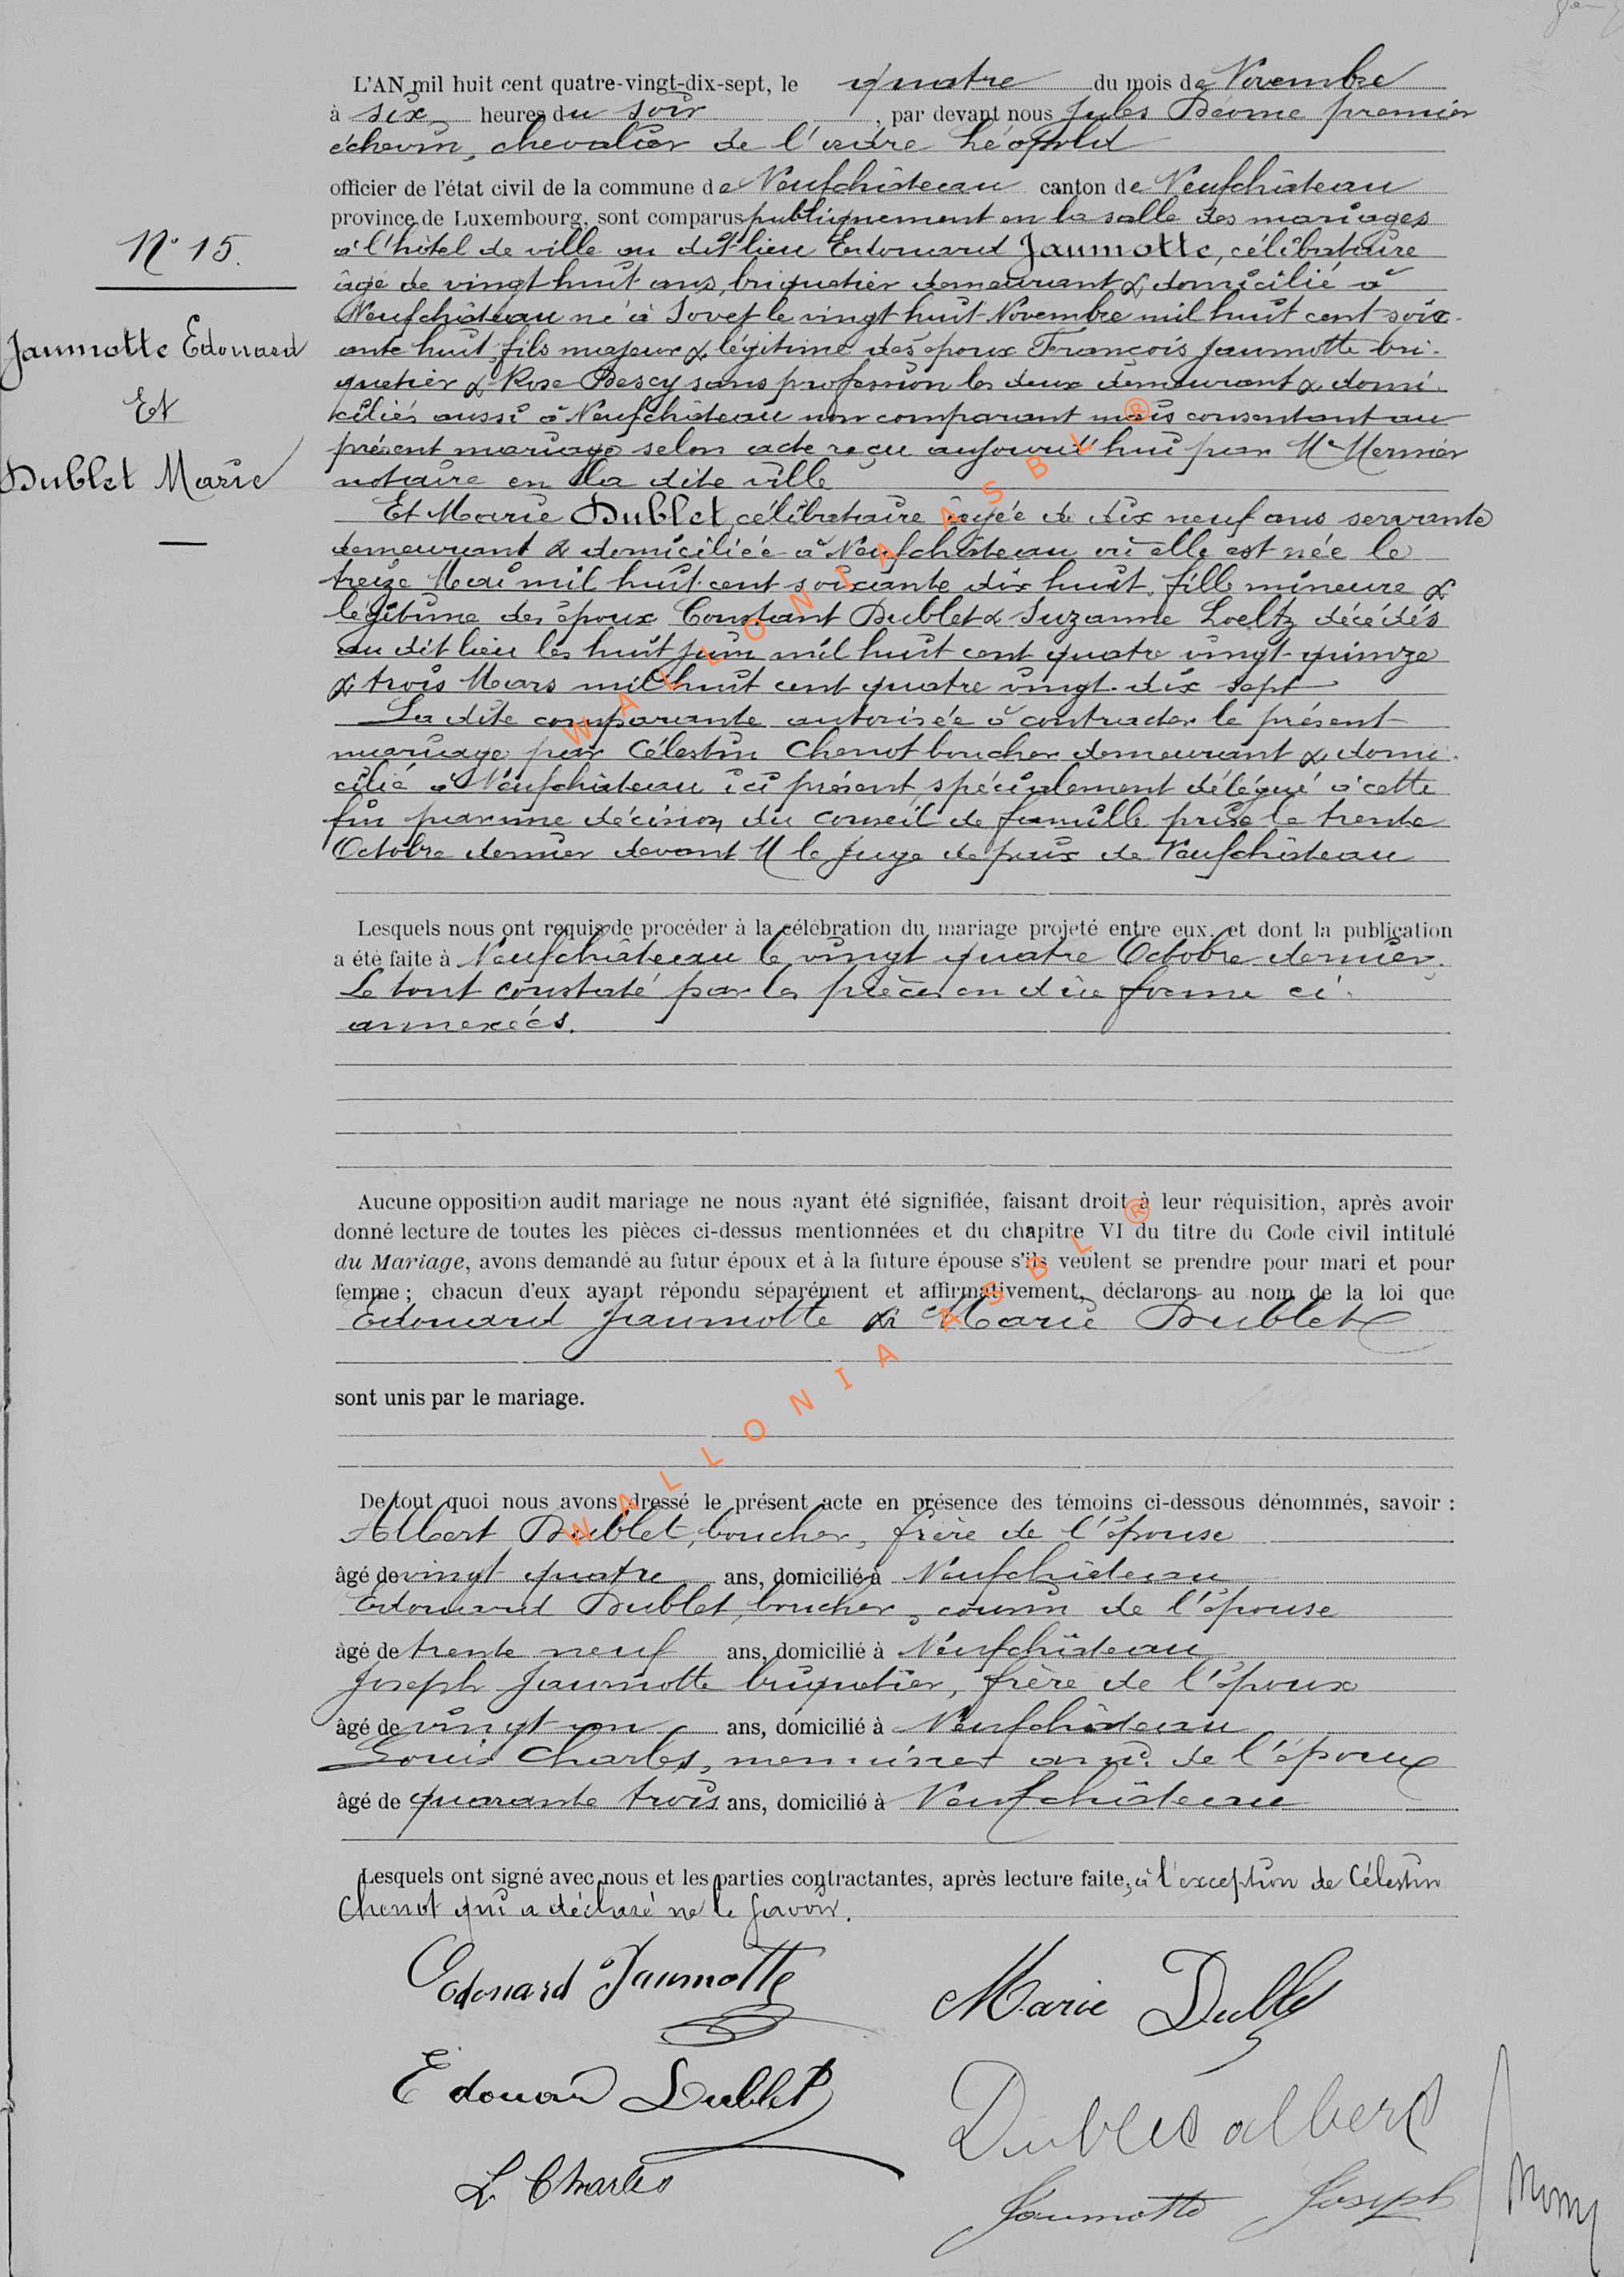 L'AN mil huit cent quatre-vingt-dix-sept, le quatre du mois de Novembre
à six heures du soir, par devant nous Jules premier
échevin, chevalier de l'ordre Léopold
officier de l'état civil de la commune de Neufchâteau canton de Neufchâteau
province de Luxembourg, sont comparus publiquement en la salle des mariages
N° 15.
à l'hôtel de ville au dit lieu Edouard Jaumotte, célibataire
âgé de vingt huit ans, briquetier demeurant & domicilié à
Neufchâteau né à Sovet le vingt huit Novembre mil huit cent soix-
Jaumotte Edouard
Et
Dublet Marie
ante huit, fils majeur & légitime des époux François Jaumotte bri-
quetier & Rose Descy sans profession les deux demeurant & domi-
ciliés aussi à Neufchâteau non comparant mais consentant au
présent mariage selon acte reçu aujourd'hui par Me Mernier
notaire en la dite ville
Et Marie Dublet, célibataire âgée de dix neuf ans servante
demeurant & domiciliée à Neufchâteau où elle est née le
treize Mai mil huit cent soixante dix huit, fille mineure &
légitime des époux Constant Dublet & Suzanne Loeltz décédés
au dit lieu les huit Juin mil huit cent quatre vingt-quinze
& trois Mars mil huit cent quatre vingt-dix sept
La dite comparante autorisée à contracter le présent
mariage par Célestin Chenot boucher demeurant & domi-
cilié à Neufchâteau ici présent, spécialement délégué à cette
fin par une décision du conseil de famille prise le trente
Octobre dernier devant M le Juge de paix de Neufchâteau
Lesquels nous ont requis de procéder à la célébration du mariage projeté entre eux, et dont la publication
a été faite à Neufchâteau le vingt quatre Octobre dernier.
Le tout constaté par les pièces en due forme ci-
annexées.
Aucune opposition audit mariage ne nous ayant été signifiée, faisant droit à leur réquisition, après avoir
donné lecture de toutes les pièces ci-dessus mentionnées et du chapitre VI du titre du Code civil intitulé
du Mariage, avons demandé au futur époux et à la future épouse s'ils veulent se prendre pour mari et pour
femme ; chacun d'eux ayant répondu séparément et affirmativement, déclarons au nom de la loi que
Edouard Jaumotte & Marie Dublet
sont unis par le mariage.
De tout quoi nous avons dressé le présent acte en présence des témoins ci-dessous dénommés, savoir :
Albert Dublet, boucher, frère de l'épouse
âgé de vingt quatre ans, domicilié à Neufchâteau
Edouard Dublet, boucher, cousin de l'épouse
âgé de trente neuf ans, domicilié à Neufchâteau
Joseph Jaumotte briquetier, frère de l'époux
âgé de vingt un ans, domicilié à Neufchâteau
Louis Charles, menuisier ami de l'époux
âgé de quarante trois ans, domicilié à Neufchâteau
Lesquels ont signé avec nous et les parties contractantes, après lecture faite, à l'exception de Célestin
Chenot qui a déclaré ne le savoir.
Edouard Jaumotte
Marie Dublet
Edouard Dublet
Dublet albert
L. Charles
Jaumotte Joseph
WALLONIA ASBL ®
WALLONIA ASBL ®